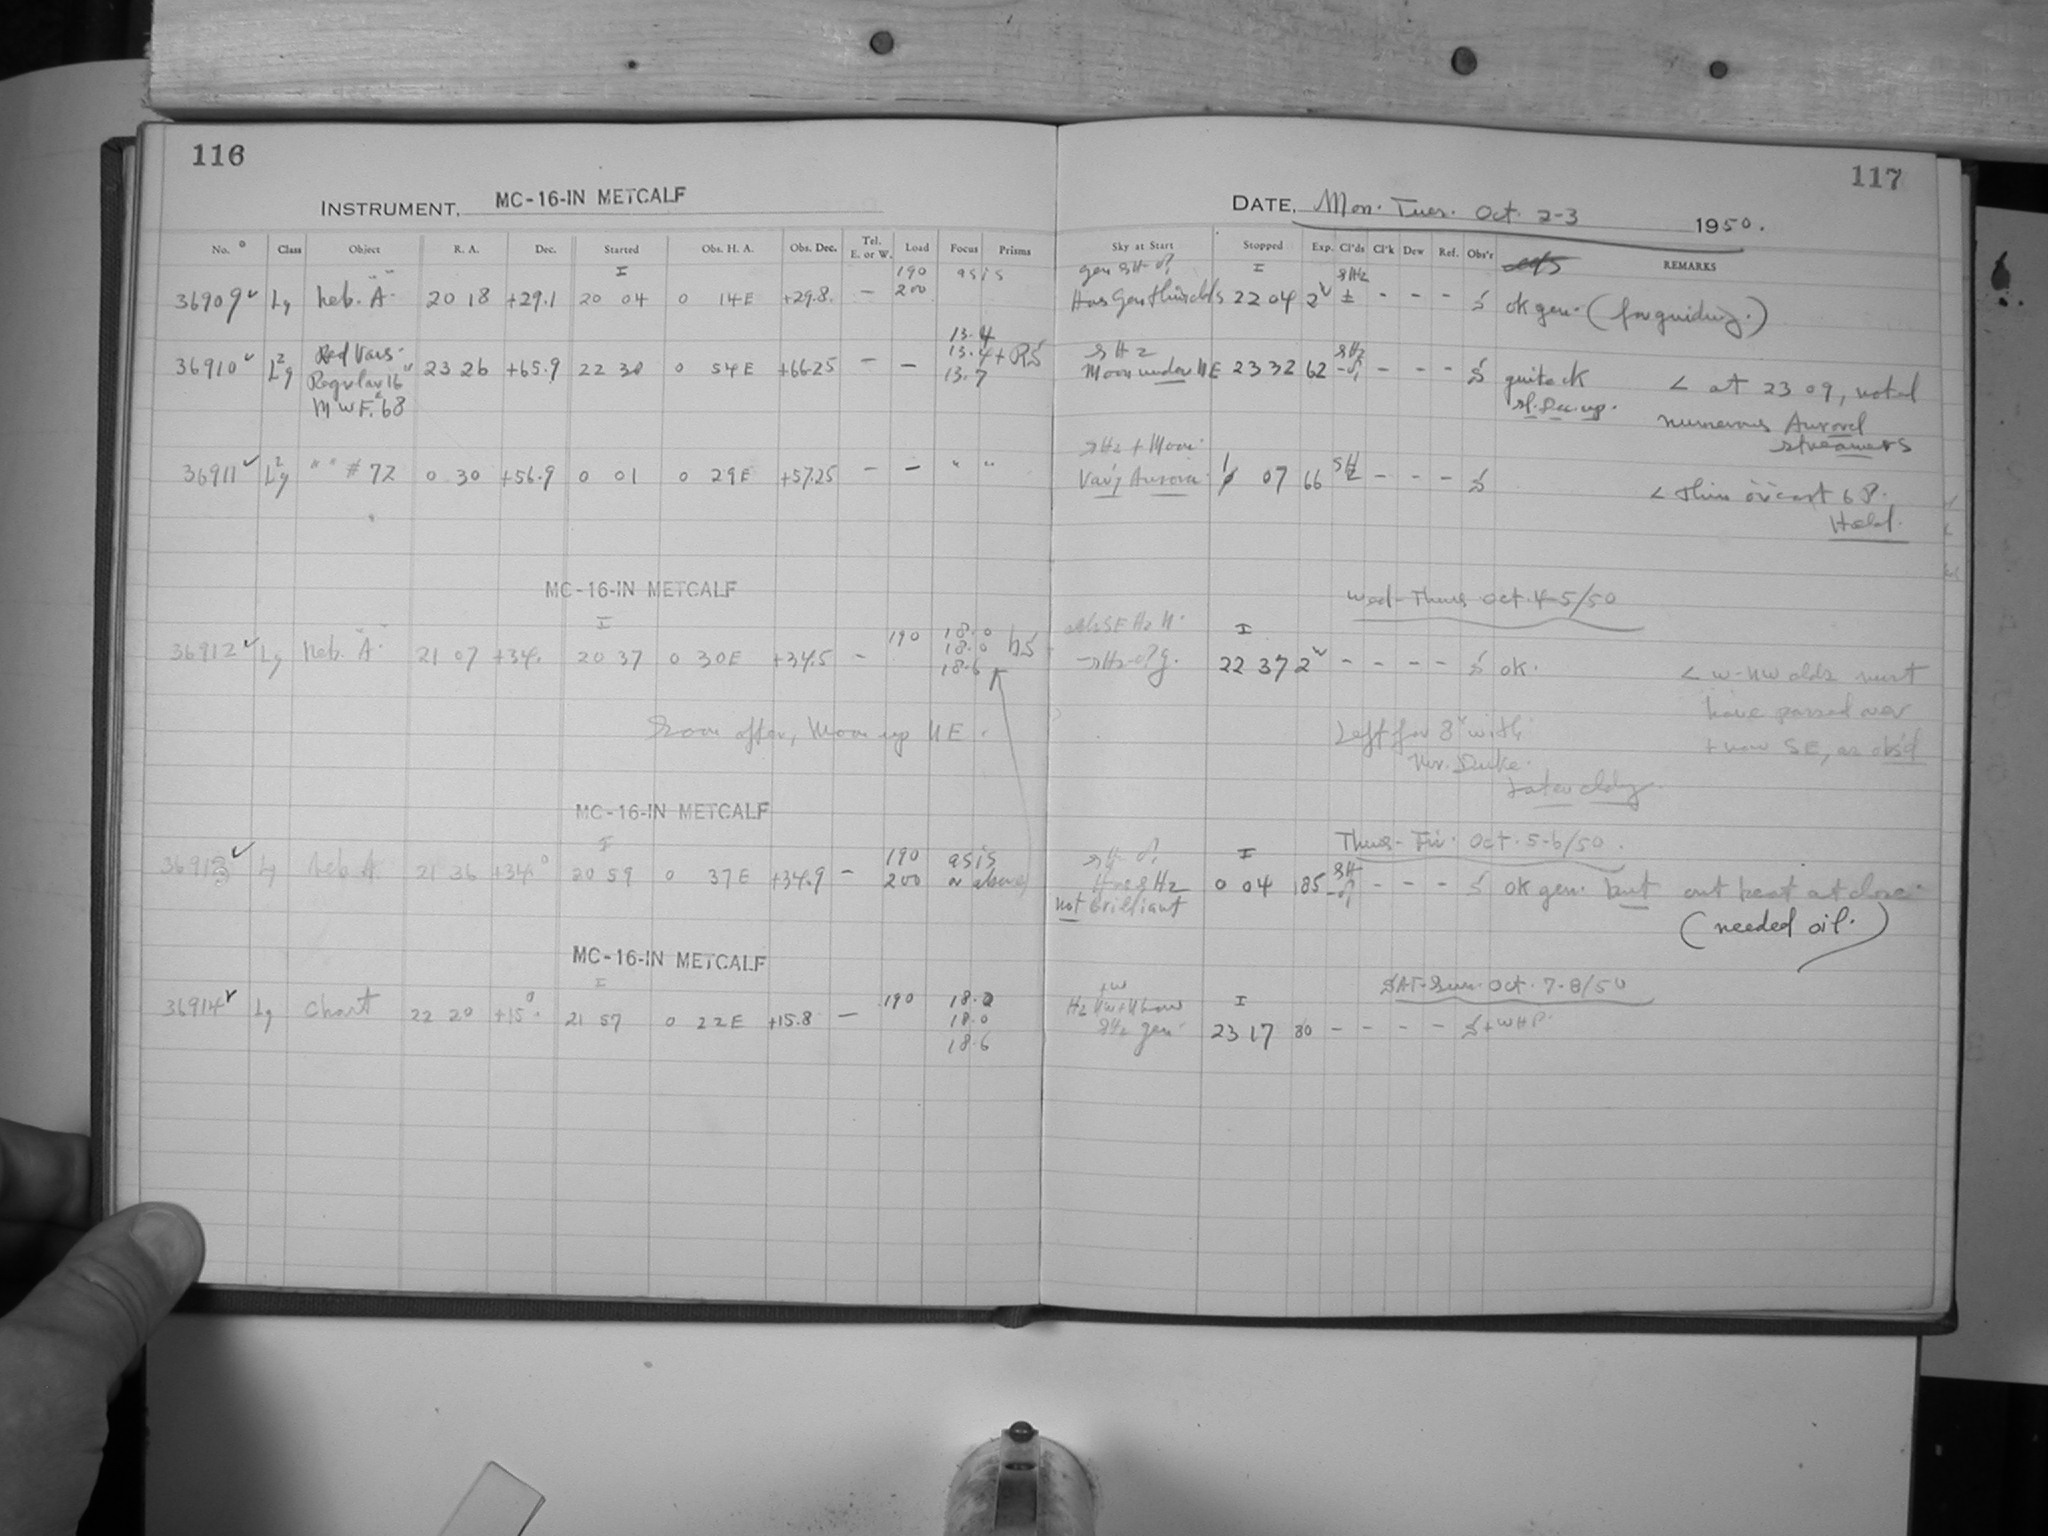 116
117
INSTRUMENT, MC-16-IN METCALF
DATE, Mon. Tues. Oct. 2-3 1950.
No. Class Object R. A. Dec. Started Obs. H. A. Obs. Dec. Tel. E. or W. Load Focus Prisms Sky at Start Stopped Exp. Cl'ds Cl'k Dew Ref. Obs'r REMARKS
I 190 as is I
36909 Neb. A. 20 18 +29.1 20 04 0 14E +29.8. - 200 22 04 2 ± - - - ok gen. (for guiding.)
13.4
Red Vars. 13.4 + RS
36910 Regular 16" 23 26 +65.9 22 30 0 54E +66.25 - - 13.7 Moon under NE 23 32 62 - - - quite ok < at 23 09, noted
MWF. 68 sl. Dec. up. numerous Auroral
streamers
sHz + Moon
36911 " " # 72 0 30 +56.9 0 01 0 29E +57.25 - - " " Var'g Aurora 1 07 66 - - - < thin ov'cast 6 P.
Held.
MC-16-IN METCALF
Wed-Thurs Oct. 4-5/50
I 190 18.0 I
36912 Neb. A. 21 07 +34. 20 37 0 30E +34.5 - 18.0 22 37 2 - - - - ok. < W-NW clds must
18.6 have passed over
Soon after, Moon up NE. Left for 3 with + now SE, as obs'd
Mr. Duke.
Later cldy.
MC-16-IN METCALF
Thurs-Fri. Oct. 5-6/50.
I 190 as is I
36913 Neb A. 21 36 +34° 20 59 0 37E +34.9 - 200 or above 0 04 185 - - - ok gen. but out beat at close.
not brilliant (needed oil.)
MC-16-IN METCALF
SAT-Sun. Oct. 7-8/50
I 190 18.0 I
36914 Chart 22 20 +15° 21 57 0 22E +15.8 - 18.0 gen. 23 17 80 - - - - + WHP.
18.6